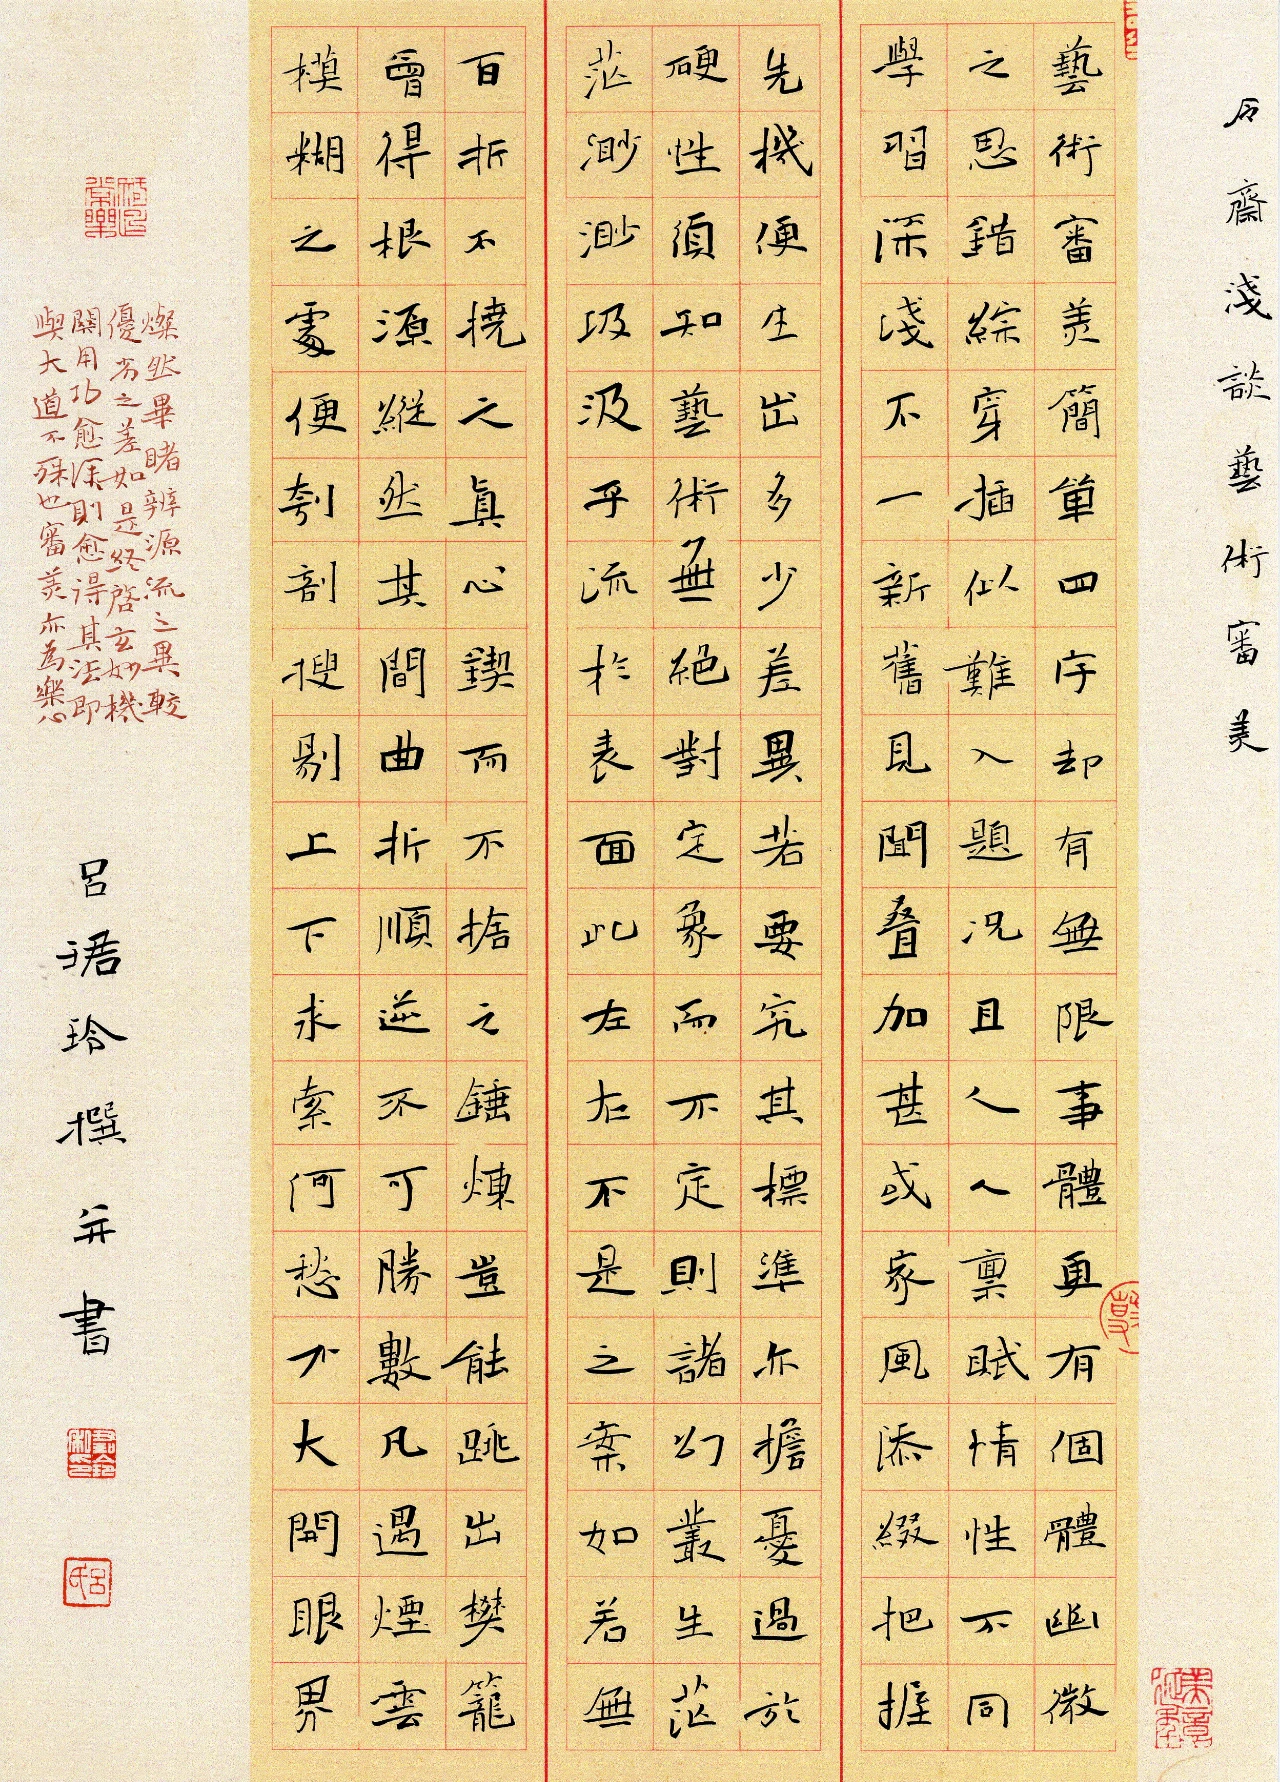 石齋淺談藝術審美
藝術審美簡單四字却有無限事體再有個體幽微
之思錯綜穿插似難入題况且人人禀賦情性不同
學習深淺不一新舊見聞疊加甚或家風添綴把握
先機便生出多少差異若要究其標準亦擔憂過於
硬性須知藝術無絕對定象而不定則諸幻叢生茫
茫渺渺圾汲乎流於表面此左右不是之案如若無
百折不撓之真心鍥而不捨之錘煉豈能跳出樊籠
曾得根源縱然其間曲折順逆不可勝數凡遇煙雲
模糊之處便刳剖搜剔上下求索何愁不大開眼界
燦然畢睹辨源流之異較
優劣之差如是終啓玄妙機
關用功愈深則愈得其法即
與大道不殊也審美亦為樂
呂珺玲撰并書
呂氏